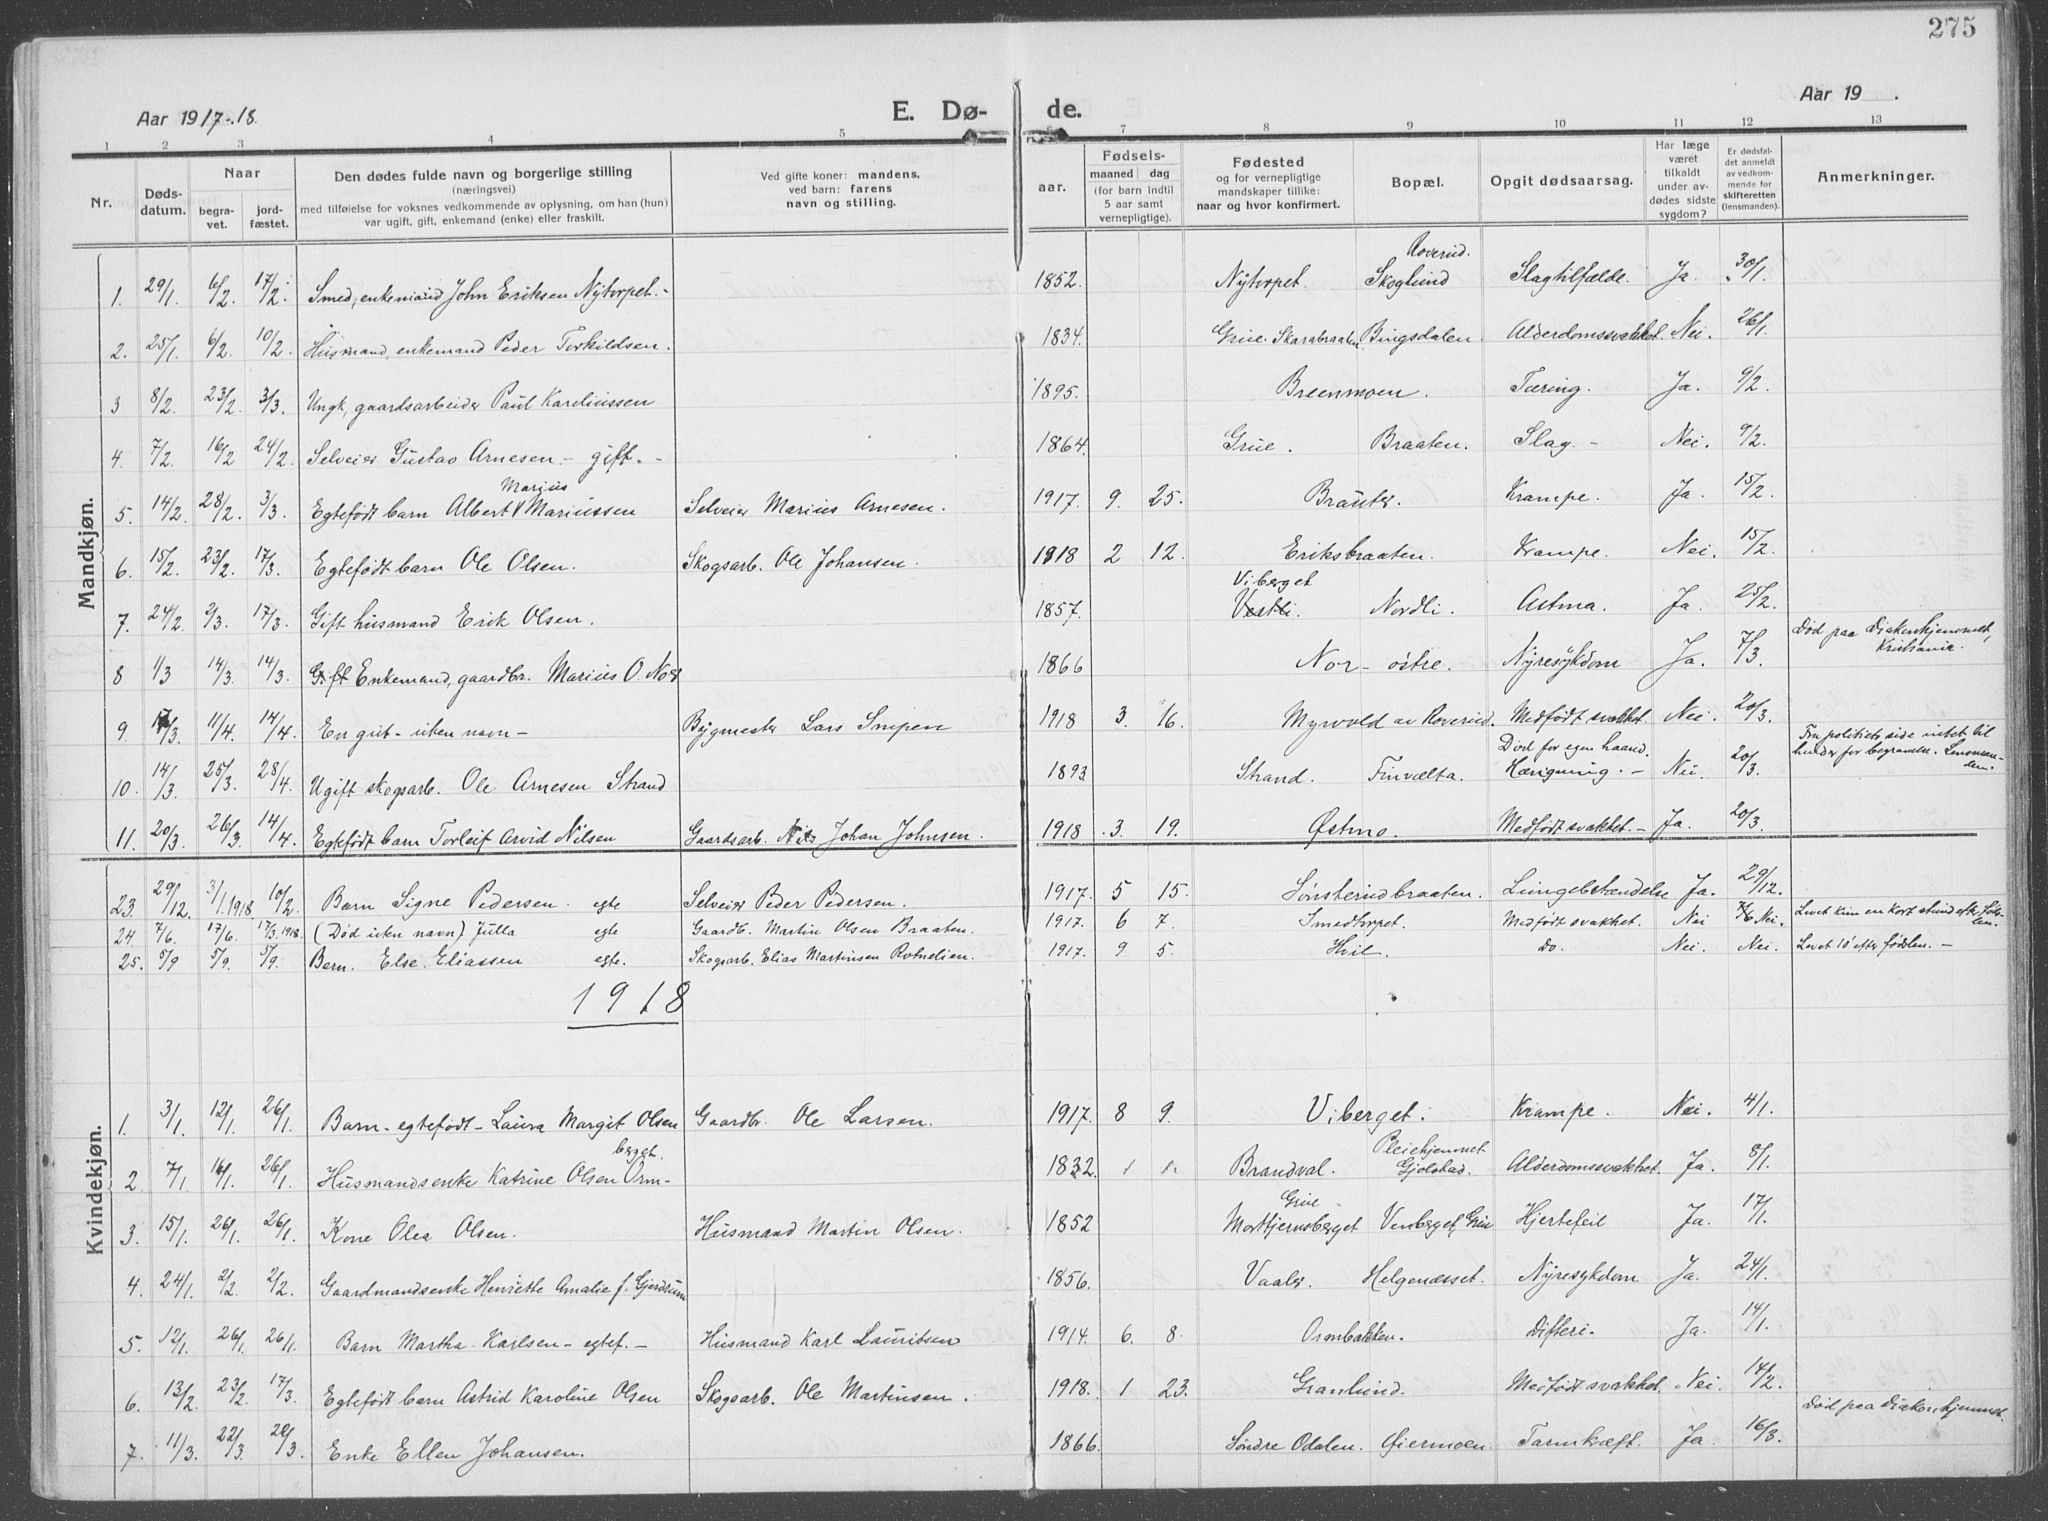 275
Aar 1917-18.
E. Dø-
de.
Aar 19 .
1 2 3 4 5 6 7 8 9 10 11 12 13
Nr.
Døds-
datum.
Naar
begra-
vet.
jord-
fæstet.
Den dødes fulde navn og borgerlige stilling
(næringsvei)
med tilføielse for voksnes vedkommende av oplysning, om han (hun)
var ugift, gift, enkemand (enke) eller fraskilt.
Ved gifte koner: mandens.
ved barn: farens
navn og stilling.
aar.
Fødsels-
maaned dag
(for barn indtil
5 aar samt
vernepligtige).
Fødested
og for vernepligtige
mandskaper tillike:
naar og hvor konfirmert.
Bopæl.
Opgit dødsaarsag.
Har læge
været
tilkaldt
under av-
dødes sidste
sygdom?
Er dødsfal-
det anmeldt
av vedkom-
mende for
skifteretten
(lensmanden).
Anmerkninger.
Mandkjøn.
1. 29/1. 6/2. 17/2. Smed, enkemand John Eriksen Nytorpet. - 1852. Nytorpet. Roverud. Skoglund Slagtilfælde. Ja. 30/1.
2. 25/1. 6/2. 10/2. Husmand, enkemand Peder Torkildsen. 1834. Grue. Skarabraaten. Bingsdalen. Alderdomssvakhet. Nei. 26/1.
3 8/2. 23/2. 3/3. Ungk, gaardsarbeider Paul Kareliussen 1895. Breenmoen. Tæring. Ja. 9/2.
4. 7/2. 16/2 24/2. Selveier Gustav Arnesen. - gift. - 1864. Grue. Braaten. Slag. - Nei. 9/2.
5. 14/2. 28/2. 3/3. Egtefødt barn Albert Marius Mariussen Selveier Marius Arnesen. 1917. 9. 25. Brauter. Krampe. Ja. 15/2.
6. 15/2. 23/2. 17/3. Egtefødt barn Ole Olsen. Skogsarb. Ole Johansen. 1918 2 12. Eriksbraaten. Krampe. Nei. 15/2.
7. 24/2. 2/3. 17/3. Gift husmand Erik Olsen. 1857. Viberget Vestli. Nordli. Astma. Ja. 25/2.
8 1/3 14/3. 14/3. Gift Enkemand, gaardbr. Marius O. Nor 1866 Nor - østre. Nyresykdom Ja. 7/3. Død paa Diakonhjemmet, Kristiania.
9. 17/3. 11/4. 14/4. En gut - uten navn - Bygmester Lars Snipen 1918 3. 16. Myrvold av Roverud. Medfødt svakhet. Nei. 20/3.
10. 14/3. 25/3. 28/4. Ugift skogsarb. Ole Arnesen Strand 1893 Strand. Finvælta. Død for egen haand. Hængning. - Nei. 20/3. Fra politiets side intet til hinder for begravelse. Lensmanden.
11. 20/3. 26/3. 14/4. Egtefødt barn Torleif Arvid Nilsen Gaardsarb. Nils Johan Johnsen. 1918 3. 19. Østmo. Medfødt svakhet. - Ja. 20/3.
Kvindekjøn.
23. 29/12. 3/1. 1918 10/2. Barn Signe Pedersen. egte Selveier Peder Pedersen. 1917. 5 15. Sønsterudbraaten. Lungebetændelse Ja. 29/12.
24. 7/6. 17/6. 17/3. 1918. (Død uten navn) Julla egte Gaardb. Martin Olsen Braaten. 1917. 6 7. Smedtorpet. Medfødt svakhet. Nei 7/6 Nei. Levet kun en kort stund eft. føds- len.
25. 5/9 5/9. 5/9. Barn. Else. Eliassen egte. Skogsarb. Elias Martinsen Rotnelien. 1917. 9 5. Hvil. do. Nei. Nei. Levet 10' efter fødslen. -
1918
1. 3/1. 12/1. 26/1. Barn - egtefødt - Laura Margit Olsen Gaardbr. Ole Larsen. 1917. 8 9. Viberget. Krampe. Nei. 4/1.
2. 7/1. 16/1. 26/1. Husmandsenke Katrine Olsen Orm- berget. 1832. 1 1. Brandval. Pleiehjemmet Gjølstad. Alderdomssvakhet. Ja. 8/1.
3. 15/1. 26/1. 26/1. Kone Olea Olsen. Husmand Martin Olsen. 1852 Grue Mortjernsberget Venberget, Grue Hjertefeil Ja. 17/1.
4. 24/1. 2/2. 2/2. Gaardmandsenke Henriette Amalie f. Gjerdrum 1856. Vaaler. Helgenæsset. Nyresykdom Ja. 24/1.
5. 12/1. 26/1. 26/1. Barn Martha Karlsen - egtef. - Husmand Karl Lauritsen 1914. 6. 8. Ormbakken. Difteri. Ja. 14/1.
6. 13/2. 23/2. 17/3. Egtefødt barn Astrid Karoline Olsen Skogsarb. Ole Martinsen. 1918. 1 23. Granlund. Medfødt svakhet. Nei. 14/2.
7. 11/3. 22/3. 22/3. Enke Ellen Johansen. 1866. Søndre Odalen. Øiermoen. Tarmkræft. Ja. 16/3. Død paa Diakonhjemmet.